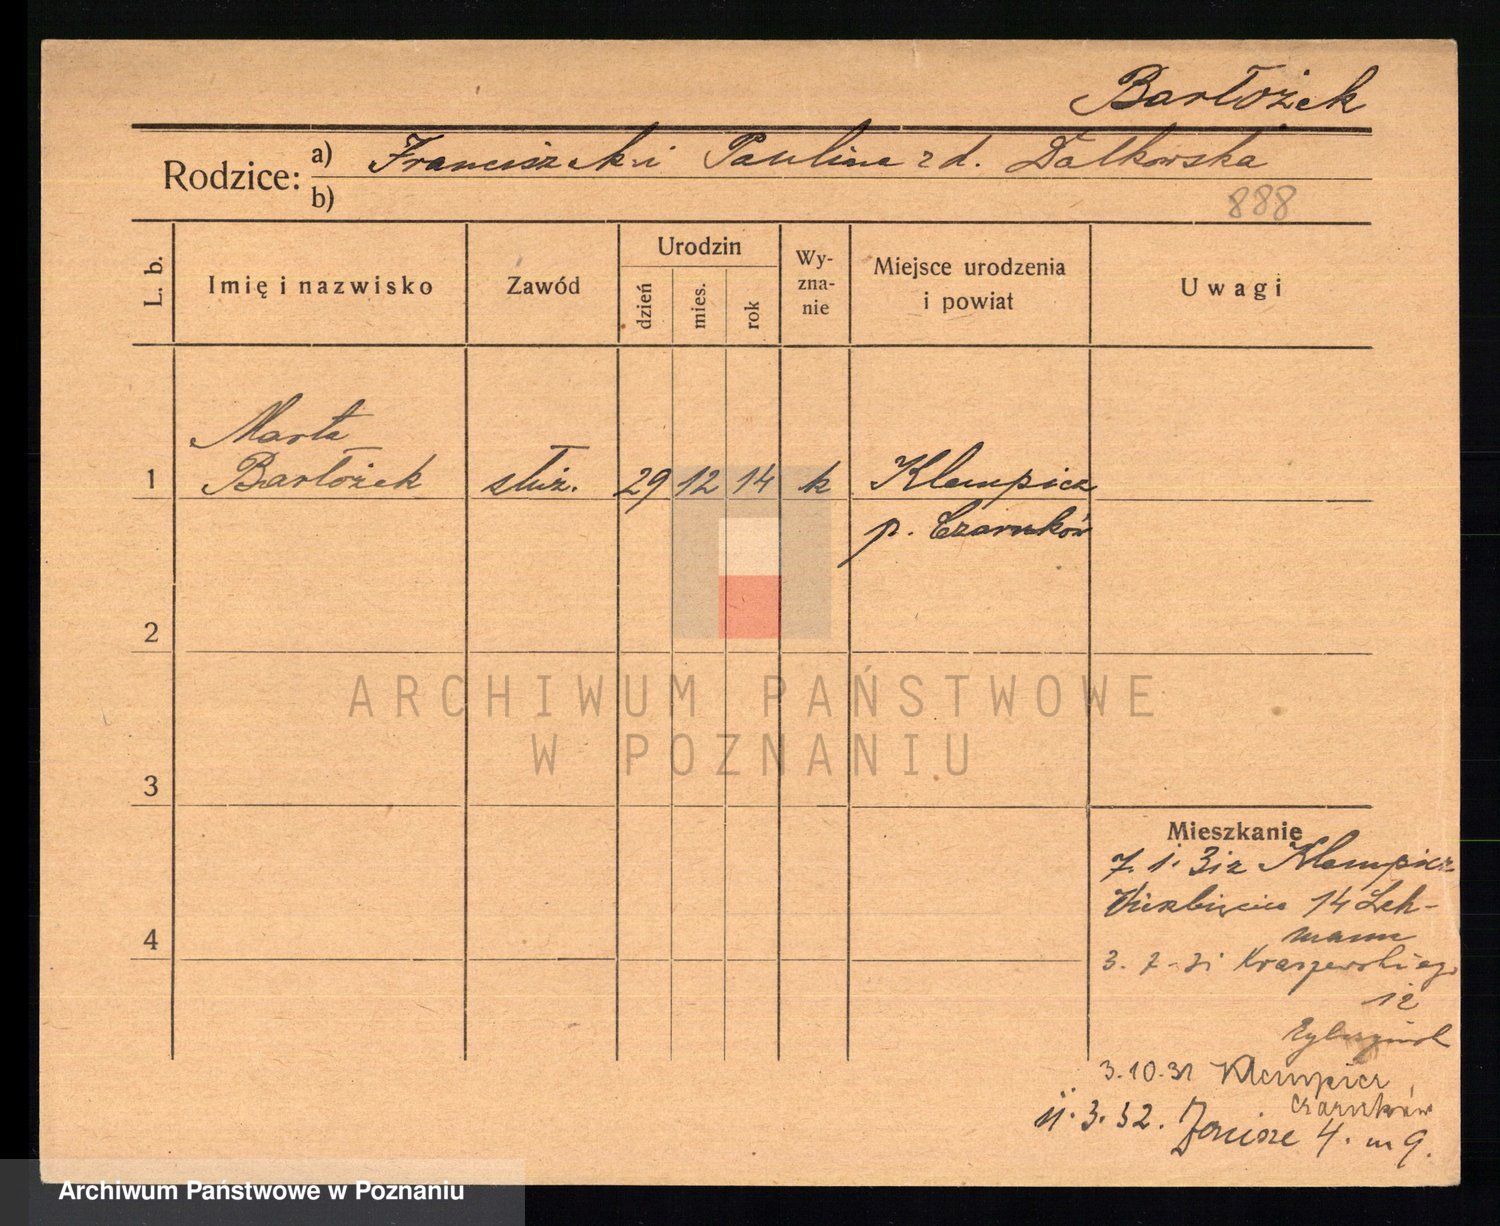 Bartożek
Rodzice: a) Franciszek i Paulina z d. Dałkowska
b)
888
L. b.
Imię i nazwisko
Zawód
Urodzin
dzień
mies.
rok
Wy-
zna-
nie
Miejsce urodzenia
i powiat
Uwagi
Marta
1 Bartożek służ. 29 12 14 k Klempicz
p. Czarnków
2
3
4
ARCHIWUM PAŃSTWOWE
W POZNANIU
Mieszkanie
7. 1. 31 z Klempicz
Wierzbięcice 14 Leh-
mann
3. 7. 31 Kraszewskiego
12
3.10.31 Klempicz
Czarnków
11.3.32. 4. m 9.
Archiwum Państwowe w Poznaniu